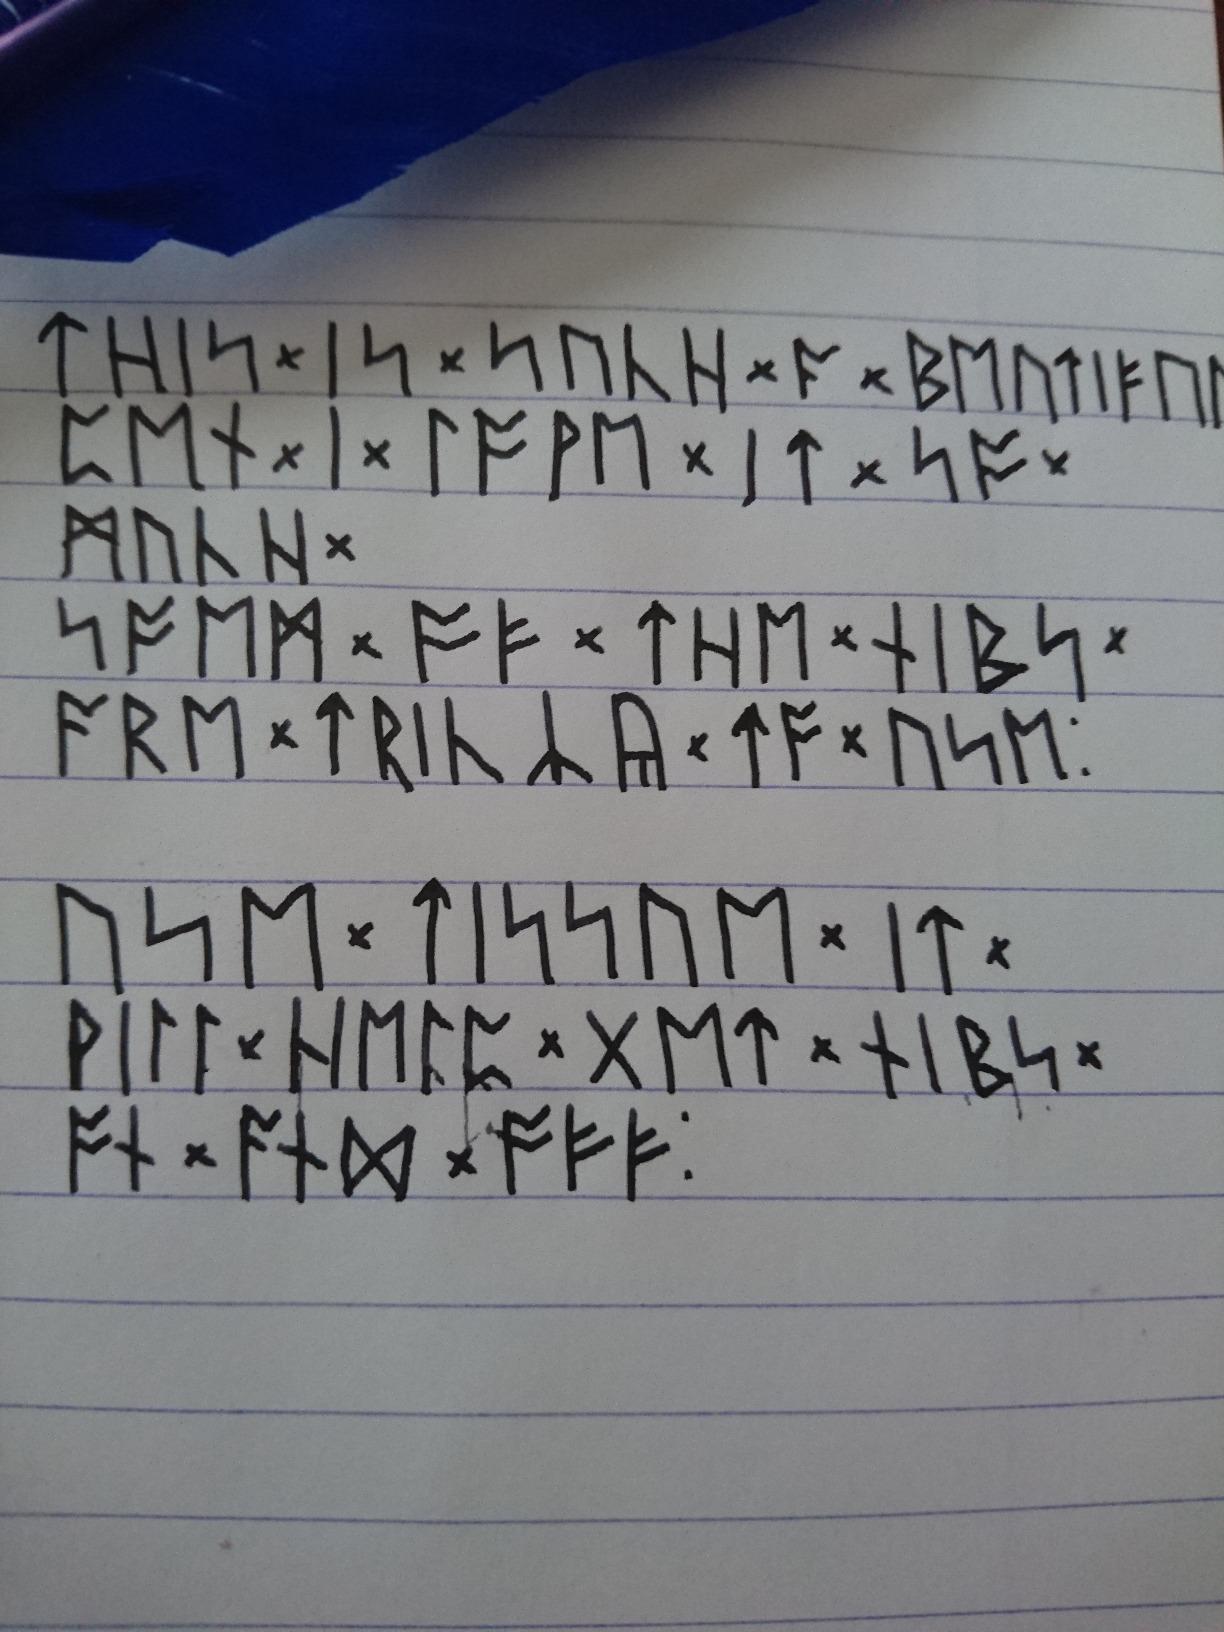 ᛏᚺᛁᛋ×ᛁᛋ×ᛋᚢᚳᚺ×ᚪ×ᛒᛖᚢᛏᛁᚠᚢᛚ
ᛈᛖᚾ×ᛁ×ᛚᚩᚹᛖ×ᛁᛏ×ᛋᚩ×
ᛗᚢᚳᚺ×
ᛋᚩᛖᛗ×ᚩᚠ×ᛏᚺᛖ×ᚾᛁᛒᛋ×
ᚪᚱᛖ×ᛏᚱᛁᚳᛣᚣ×ᛏᚩ×ᚢᛋᛖ:
ᚢᛋᛖ×ᛏᛁᛋᛋᚢᛖ×ᛁᛏ×
ᚹᛁᛚᛚ×ᚺᛖᛚᛈ×ᚷᛖᛏ×ᚾᛁᛒᛋ×
ᚩᚾ×ᚪᚾᛞ×ᚩᚠᚠ: